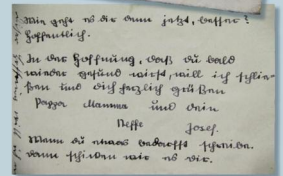 Wie geht es dir denn jetzt, besser?
Hoffentlich.
In der Hoffnung, daß du bald
wieder gesund wirst, will ich schlie-
ßen und dich herzlich grüßen
Pappa Mamma und dein
Neffe Josef.
Wenn du etwas bedarfst schreibe.
dann schicken wir es dir.